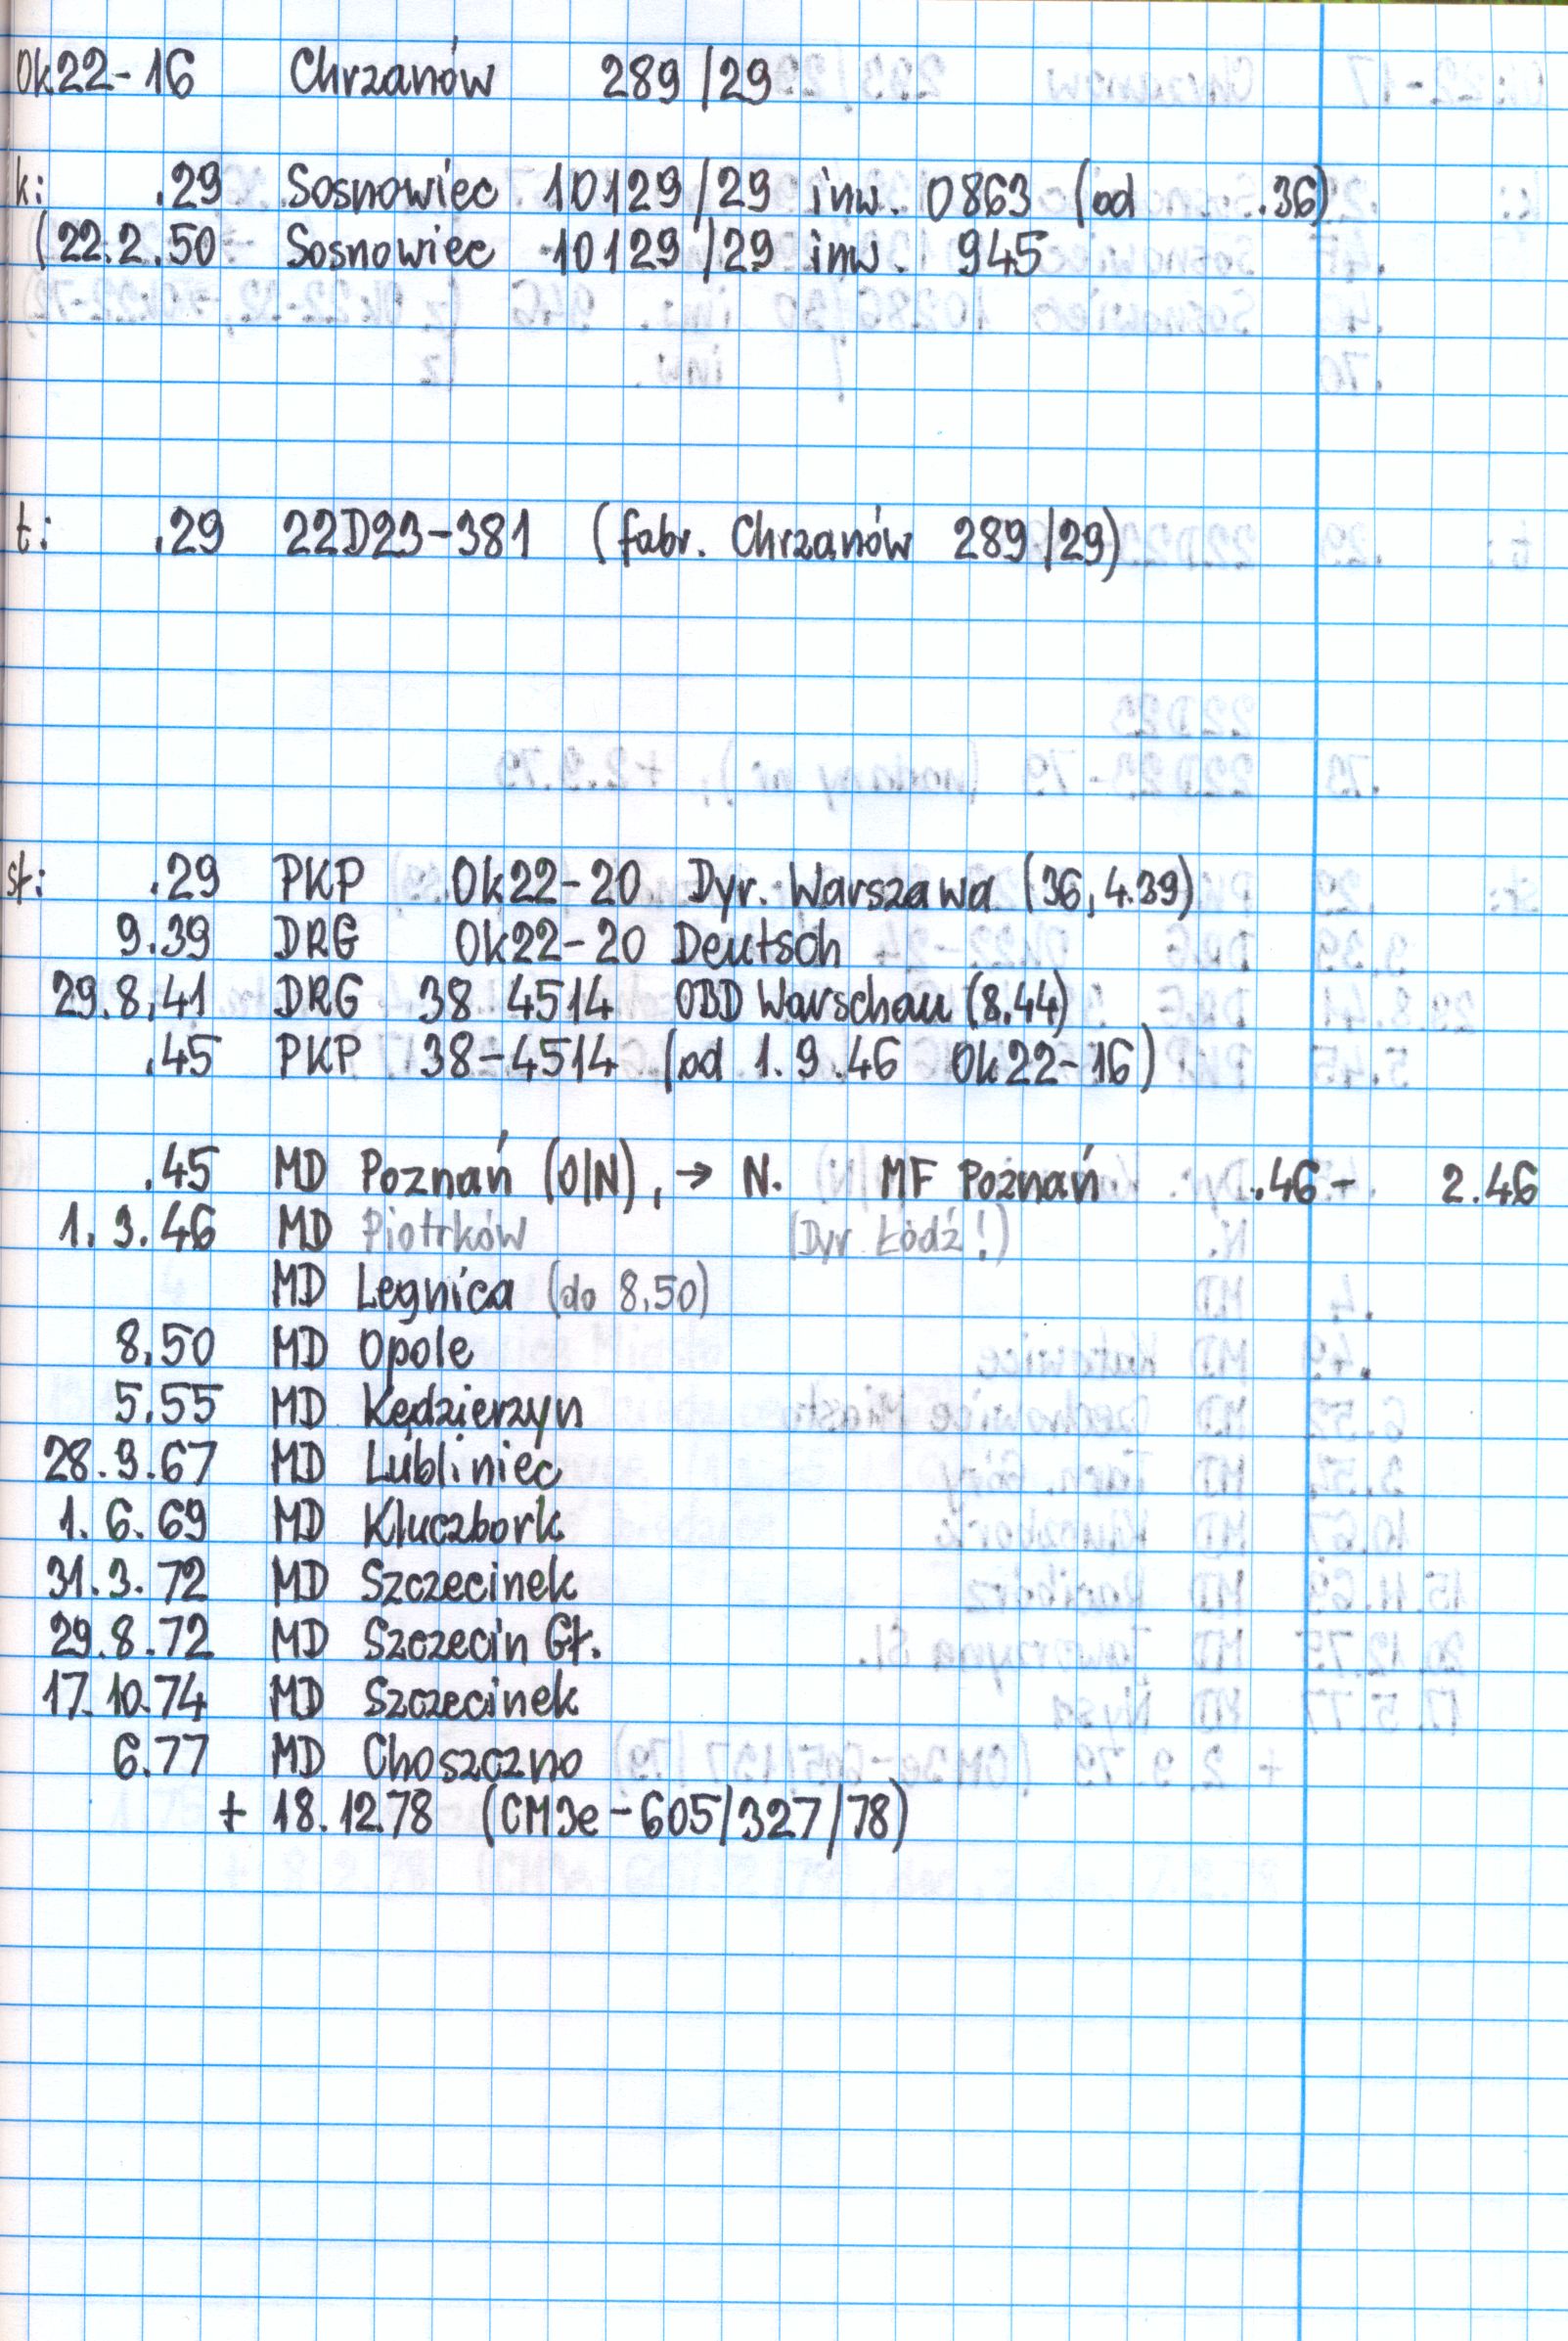 Ok22-16 Chrzanów 289/29
k: .29 Sosnowiec 10129/29 inw. 0863 (od .36)
(22.2.50 Sosnowiec 10129/29 inw. 945
t: .29 22D23-381 (fabr. Chrzanów 289/29)
st: .29 PKP Ok22-20 Dyr. Warszawa (36, 4.39)
9.39 DRG Ok22-20 Deutsch
29.8.41 DRG 38 4514 OBD Warschau (8.44)
.45 PKP 38-4514 (od 1.9.46 Ok22-16)
.45 MD Poznań (O/N), → N. MF Poznań .46- 2.46
1.3.46 MD Piotrków (Dyr Łódź!)
MD Legnica (do 8.50)
8.50 MD Opole
5.55 MD Kędzierzyn
28.9.67 MD Lubliniec
1.6.69 MD Kluczbork
31.3.72 MD Szczecinek
29.8.72 MD Szczecin Gł.
17.10.74 MD Szczecinek
6.77 MD Choszczno
+ 18.12.78 (CM3e-605/327/78)